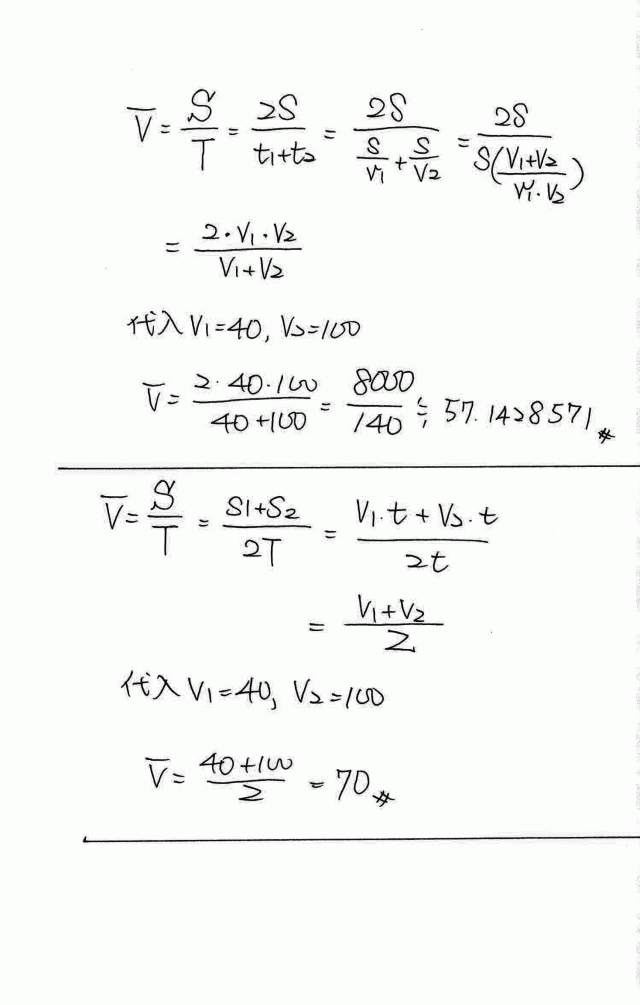 V̄ = S/T = 2S/(t1+t2) = 2S/(S/V1 + S/V2) = 2S/(S((V1+V2)/(V1·V2)))
= (2·V1·V2)/(V1+V2)
代入 V1=40, V2=100
V̄ = (2·40·100)/(40+100) = 8000/140 ≒ 57.1428571 #
V̄ = S/T = (S1+S2)/2T = (V1·t + V2·t)/2t
= (V1+V2)/2
代入 V1=40, V2=100
V̄ = (40+100)/2 = 70 #